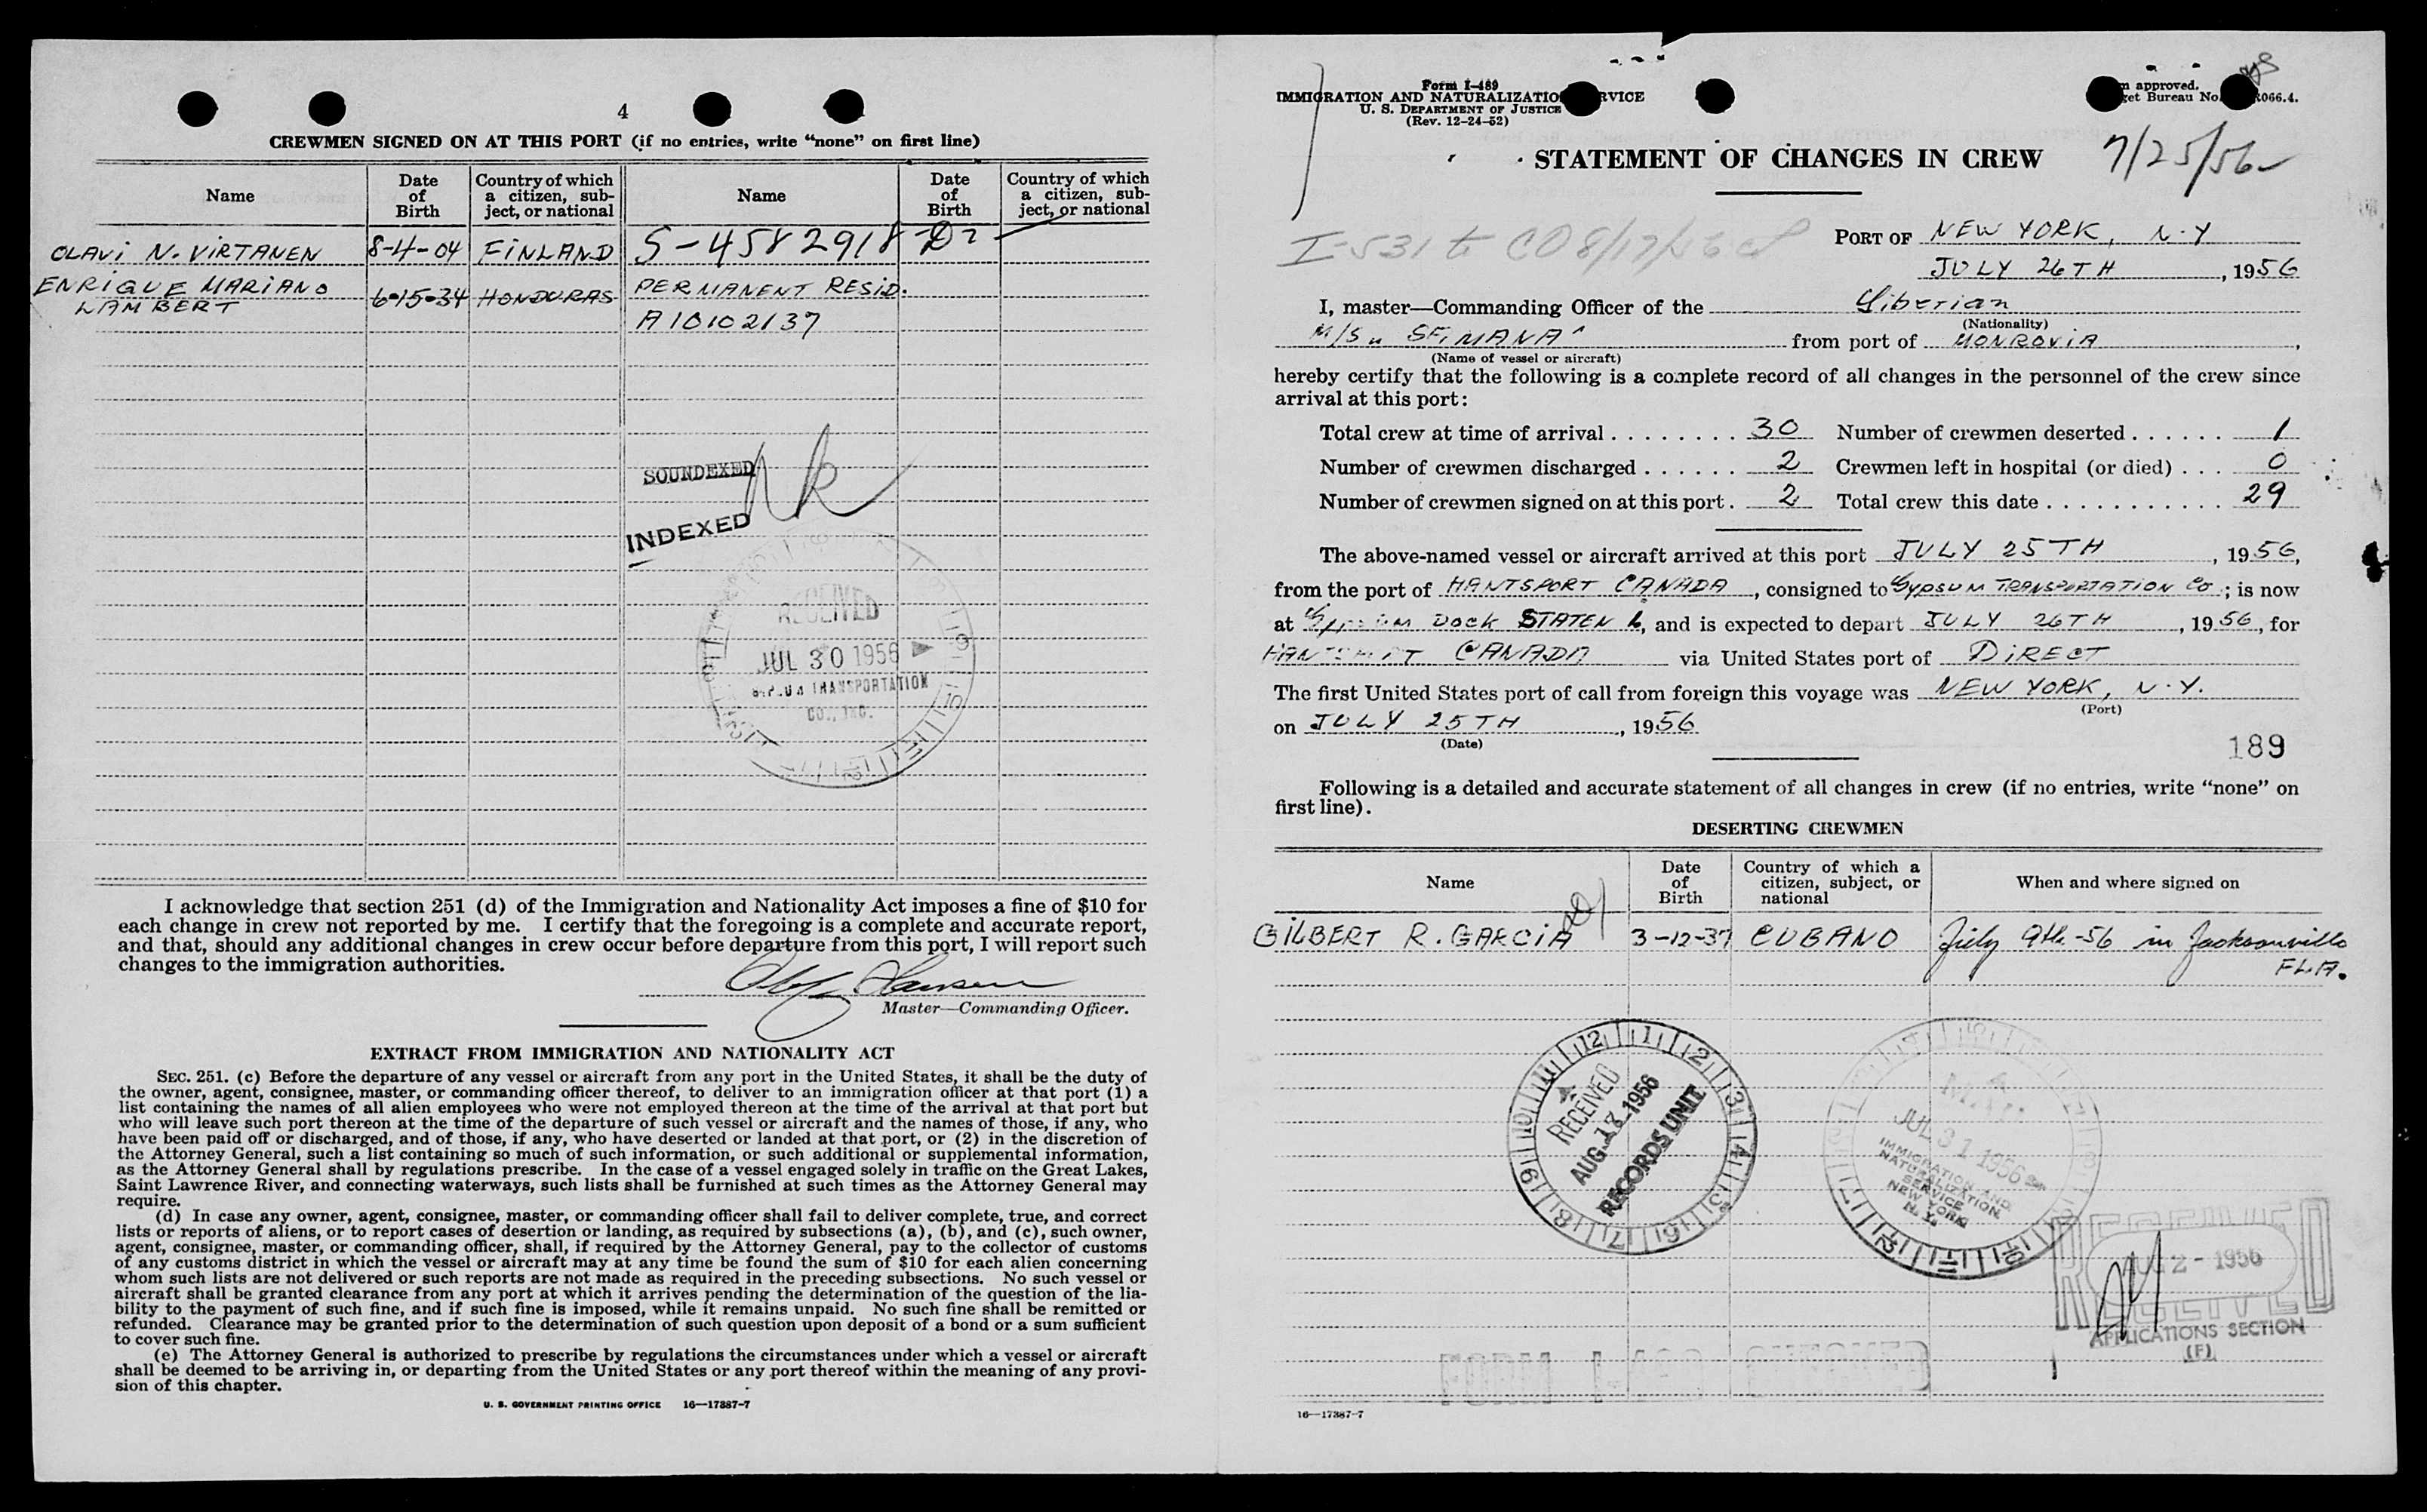 4
CREWMEN SIGNED ON AT THIS PORT (if no entries, write “none” on first line)
Name
Date of Birth
Country of which a citizen, subject, or national
Name
Date of Birth
Country of which a citizen, subject, or national
OLAVI N. VIRTANEN 8-4-04 FINLAND S-4582918 D2
ENRIQUE MARIANO LAMBERT 6-15-34 HONDURAS PERMANENT RESID.
A10102137
SOUNDEXED
INDEXED
RECEIVED
JUL 30 1956
TRANSPORTATION
CO., INC.
I acknowledge that section 251 (d) of the Immigration and Nationality Act imposes a fine of $10 for
each change in crew not reported by me. I certify that the foregoing is a complete and accurate report,
and that, should any additional changes in crew occur before departure from this port, I will report such
changes to the immigration authorities.
Hansen
Master—Commanding Officer.
EXTRACT FROM IMMIGRATION AND NATIONALITY ACT
SEC. 251. (c) Before the departure of any vessel or aircraft from any port in the United States, it shall be the duty of
the owner, agent, consignee, master, or commanding officer thereof, to deliver to an immigration officer at that port (1) a
list containing the names of all alien employees who were not employed thereon at the time of the arrival at that port but
who will leave such port thereon at the time of the departure of such vessel or aircraft and the names of those, if any, who
have been paid off or discharged, and of those, if any, who have deserted or landed at that port, or (2) in the discretion of
the Attorney General, such a list containing so much of such information, or such additional or supplemental information,
as the Attorney General shall by regulations prescribe. In the case of a vessel engaged solely in traffic on the Great Lakes,
Saint Lawrence River, and connecting waterways, such lists shall be furnished at such times as the Attorney General may
require.
(d) In case any owner, agent, consignee, master, or commanding officer shall fail to deliver complete, true, and correct
lists or reports of aliens, or to report cases of desertion or landing, as required by subsections (a), (b), and (c), such owner,
agent, consignee, master, or commanding officer, shall, if required by the Attorney General, pay to the collector of customs
of any customs district in which the vessel or aircraft may at any time be found the sum of $10 for each alien concerning
whom such lists are not delivered or such reports are not made as required in the preceding subsections. No such vessel or
aircraft shall be granted clearance from any port at which it arrives pending the determination of the question of the lia-
bility to the payment of such fine, and if such fine is imposed, while it remains unpaid. No such fine shall be remitted or
refunded. Clearance may be granted prior to the determination of such question upon deposit of a bond or a sum sufficient
to cover such fine.
(e) The Attorney General is authorized to prescribe by regulations the circumstances under which a vessel or aircraft
shall be deemed to be arriving in, or departing from the United States or any port thereof within the meaning of any provi-
sion of this chapter.
U. S. GOVERNMENT PRINTING OFFICE 16—17887-7
Form I-489
IMMIGRATION AND NATURALIZATIO RVICE
U. S. DEPARTMENT OF JUSTICE
(Rev. 12-24-52)
approved.
et Bureau No. 066.4.
STATEMENT OF CHANGES IN CREW
7/25/56
I-531 to CO 8/17/56
PORT OF NEW YORK, N.Y
JULY 26TH, 1956
I, master—Commanding Officer of the Liberian
(Nationality)
M/S "SFIMANA" from port of MONROVIA,
(Name of vessel or aircraft)
hereby certify that the following is a complete record of all changes in the personnel of the crew since
arrival at this port:
Total crew at time of arrival . . . . . . . . 30 Number of crewmen deserted . . . . . . 1
Number of crewmen discharged . . . . . . 2 Crewmen left in hospital (or died) . . . 0
Number of crewmen signed on at this port . 2 Total crew this date . . . . . . . . . . . 29
The above-named vessel or aircraft arrived at this port JULY 25TH, 1956,
from the port of HANTSPORT CANADA, consigned to GYPSUM TRANSPORTATION CO; is now
at DOCK STATEN, and is expected to depart JULY 26TH, 1956, for
HANTSPORT CANADA via United States port of DIRECT
The first United States port of call from foreign this voyage was NEW YORK, N.Y.
(Port)
on JULY 25TH, 1956
(Date)
189
Following is a detailed and accurate statement of all changes in crew (if no entries, write “none” on
first line).
DESERTING CREWMEN
Name
Date of Birth
Country of which a citizen, subject, or national
When and where signed on
GILBERT R. GARCIA 3-12-37 CUBANO July 9th-56 in Jacksonville
FLA.
RECEIVED
AUG 17 1956
RECORDS UNIT
JUL 31 1956
IMMIGRATION AND
NATURALIZATION
SERVICE
NEW YORK
N. Y.
RECEIVED
AUG 2 - 1956
APPLICATIONS SECTION
(F)
FORM I-489 CHECKED
16—17887-7